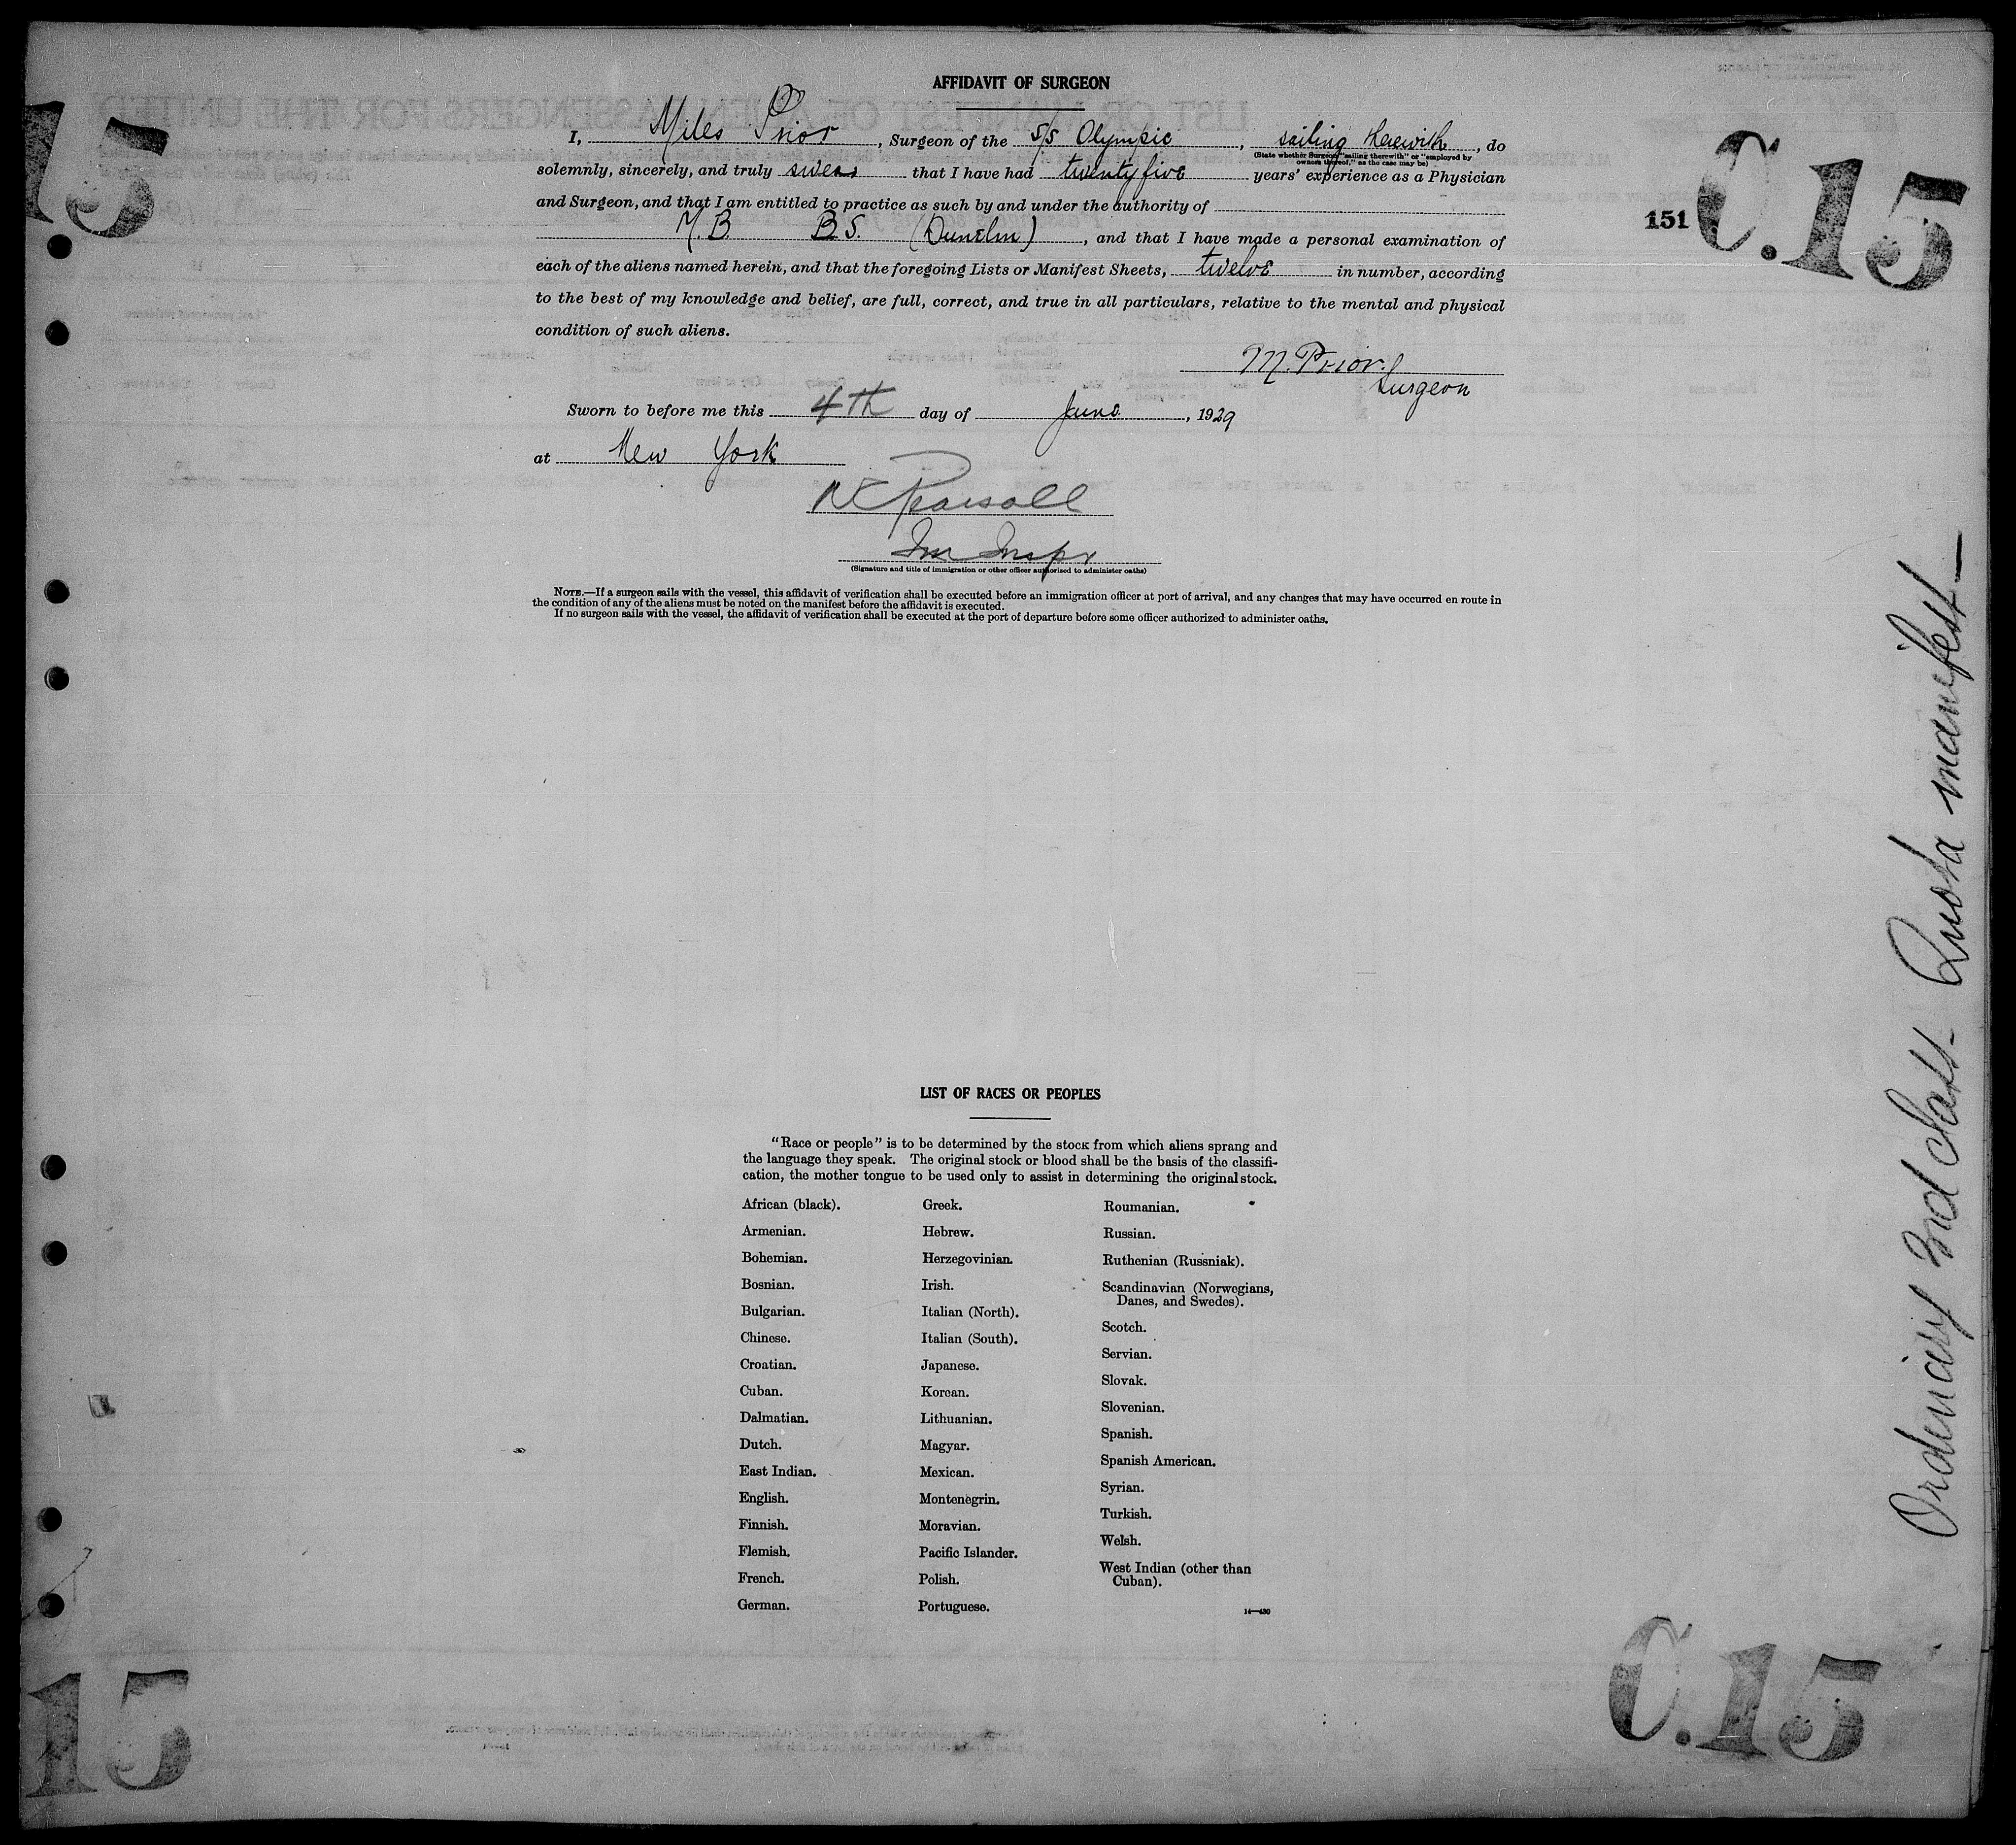 AFFIDAVIT OF SURGEON
I, Miles Prior, Surgeon of the S/S Olympic, sailing therewith, do
(State whether Surgeon "sailing therewith" or "employed by
owners thereof," as the case may be)
solemnly, sincerely, and truly swear that I have had twenty five years' experience as a Physician
and Surgeon, and that I am entitled to practice as such by and under the authority of
M.B B.S. (Dunelm), and that I have made a personal examination of
each of the aliens named herein, and that the foregoing Lists or Manifest Sheets, twelve in number, according
to the best of my knowledge and belief, are full, correct, and true in all particulars, relative to the mental and physical
condition of such aliens.
M. Prior.
Surgeon
Sworn to before me this 4th day of June, 1929
at New York
Pearsall
Im Inspr
(Signature and title of immigration or other officer authorized to administer oaths)
NOTE.—If a surgeon sails with the vessel, this affidavit of verification shall be executed before an immigration officer at port of arrival, and any changes that may have occurred en route in
the condition of any of the aliens must be noted on the manifest before the affidavit is executed.
If no surgeon sails with the vessel, the affidavit of verification shall be executed at the port of departure before some officer authorized to administer oaths.
15
151
C.15
Ordinary 2nd Class - Quota manifest -
LIST OF RACES OR PEOPLES
"Race or people" is to be determined by the stock from which aliens sprang and
the language they speak. The original stock or blood shall be the basis of the classifi-
cation, the mother tongue to be used only to assist in determining the original stock.
African (black).
Armenian.
Bohemian.
Bosnian.
Bulgarian.
Chinese.
Croatian.
Cuban.
Dalmatian.
Dutch.
East Indian.
English.
Finnish.
Flemish.
French.
German.
Greek.
Hebrew.
Herzegovinian.
Irish.
Italian (North).
Italian (South).
Japanese.
Korean.
Lithuanian.
Magyar.
Mexican.
Montenegrin.
Moravian.
Pacific Islander.
Polish.
Portuguese.
Roumanian.
Russian.
Ruthenian (Russniak).
Scandinavian (Norwegians,
Danes, and Swedes).
Scotch.
Servian.
Slovak.
Slovenian.
Spanish.
Spanish American.
Syrian.
Turkish.
Welsh.
West Indian (other than
Cuban).
14—430
15
C.15